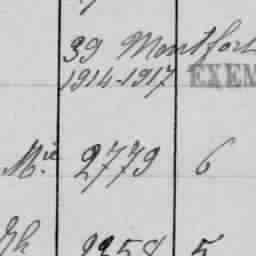 39 Montfort
1914-1917 EXEM
Mie 2779 6
2258 5